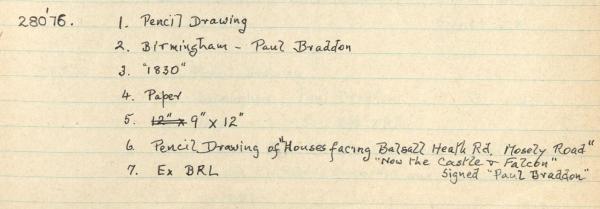 280'76.
1. Pencil Drawing
2. Birmingham - Paul Braddon
3. "1830"
4. Paper
5. 12" x 9" x 12"
6. Pencil Drawing of "Houses facing Balsall Heath Rd. Mosely Road"
"Now the Castle & Falcon"
7. Ex BRL
Signed "Paul Braddon"